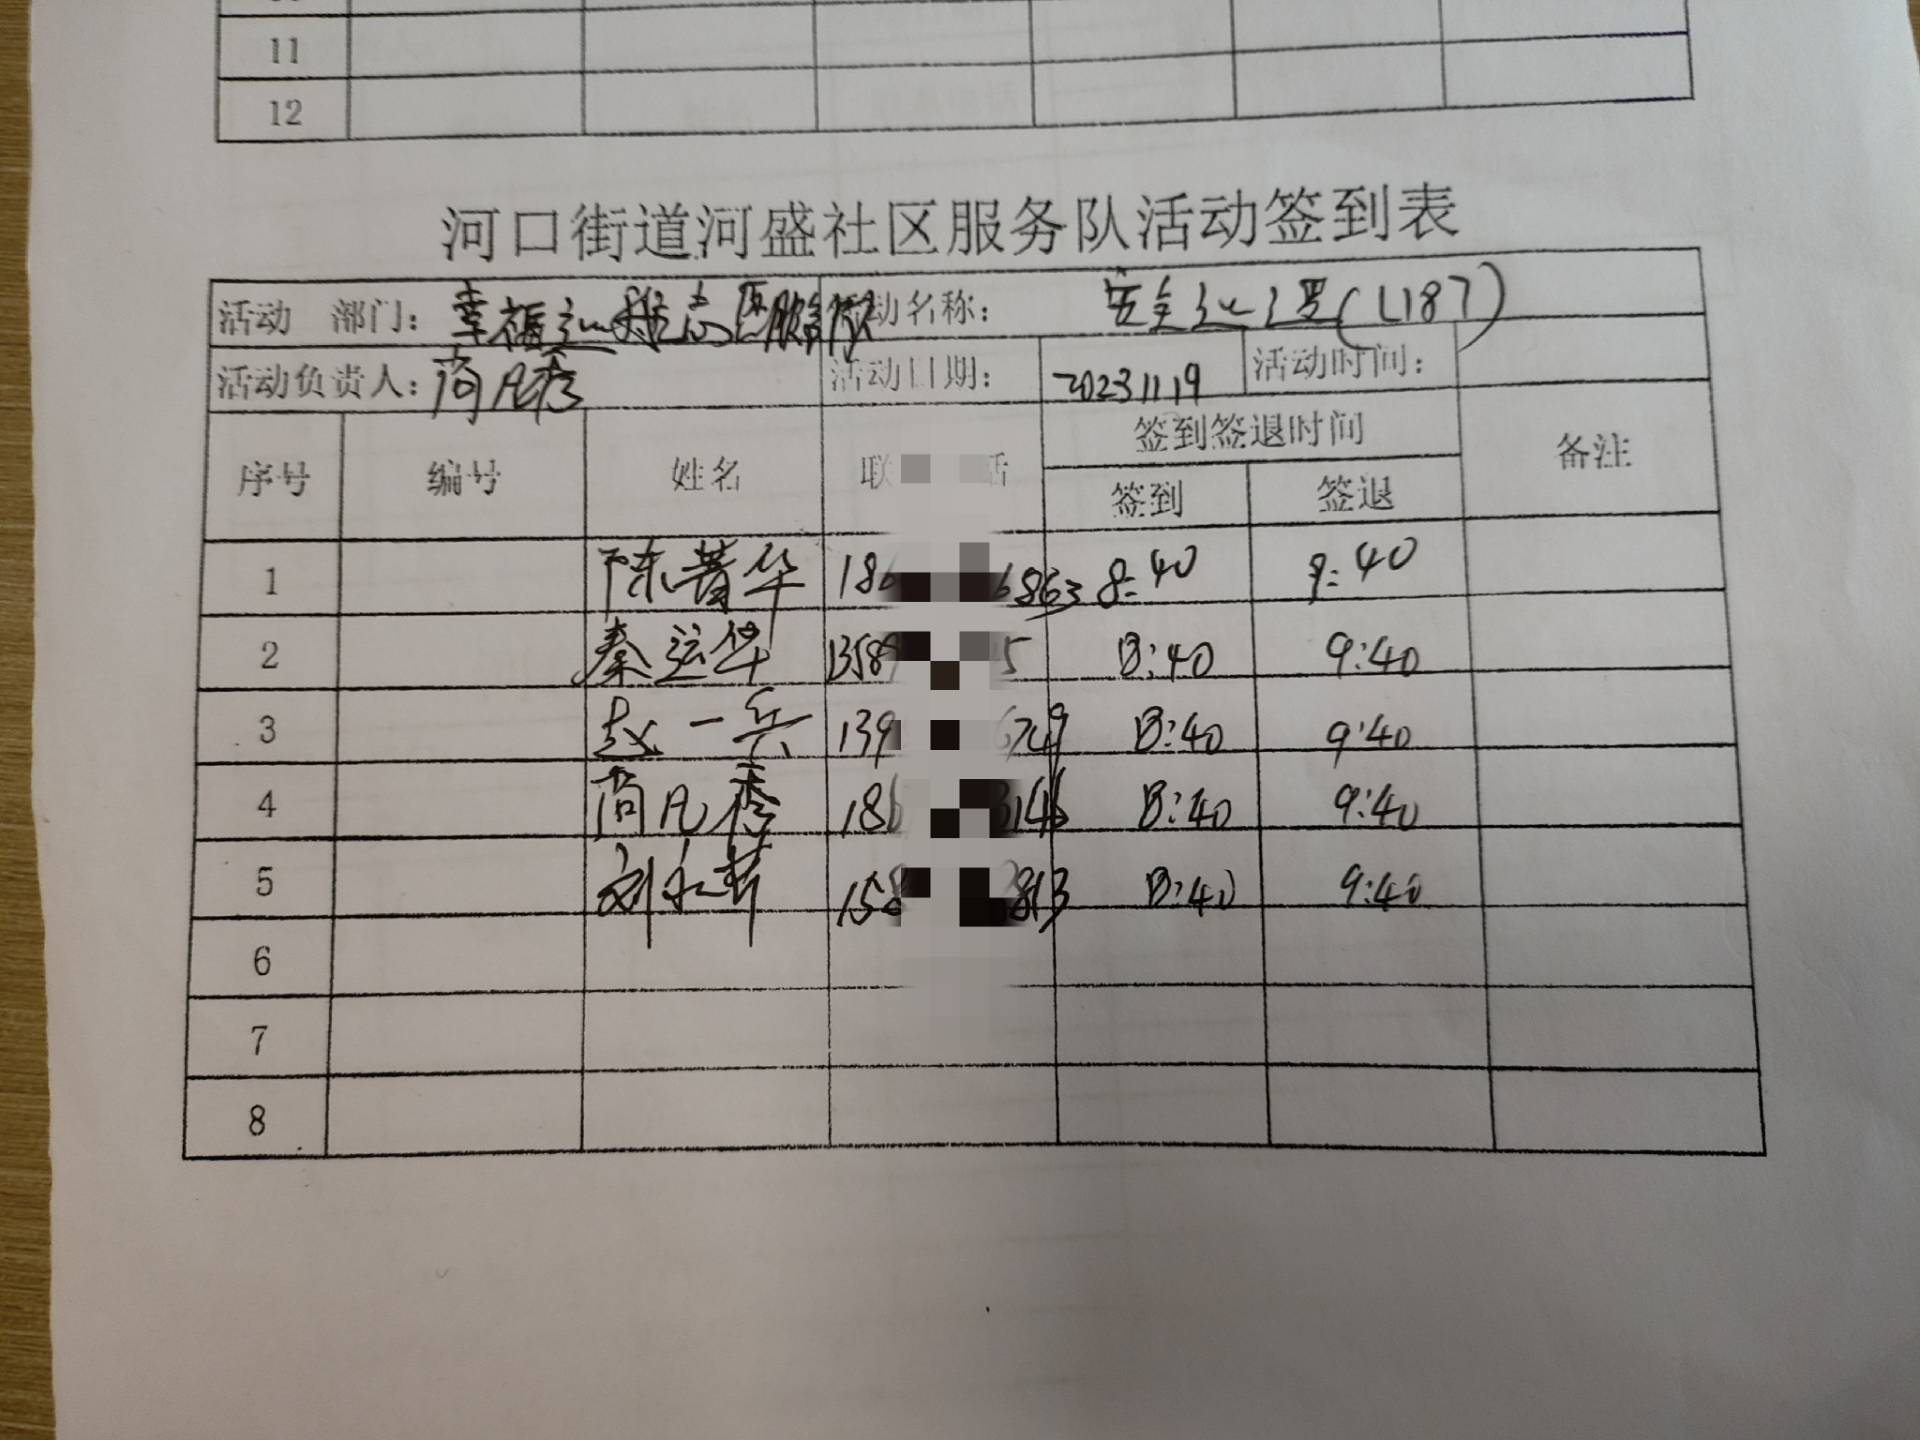 11
12
河口街道河盛社区服务队活动签到表
活动 部门： 幸福 志愿服务队 活动名称： 安全 (L187)
活动负责人： 尚凡秀 活动日期： 20231119 活动时间：
序号 编号 姓名 联 话 签到签退时间 备注
签到 签退
1 陈菁华 186 6863 8:40 9:40
2 秦运华 1358 5 8:40 9:40
3 赵一兵 139 6749 8:40 9:40
4 尚凡秀 186 3146 8:40 9:40
5 刘 158 2813 8:40 9:40
6
7
8